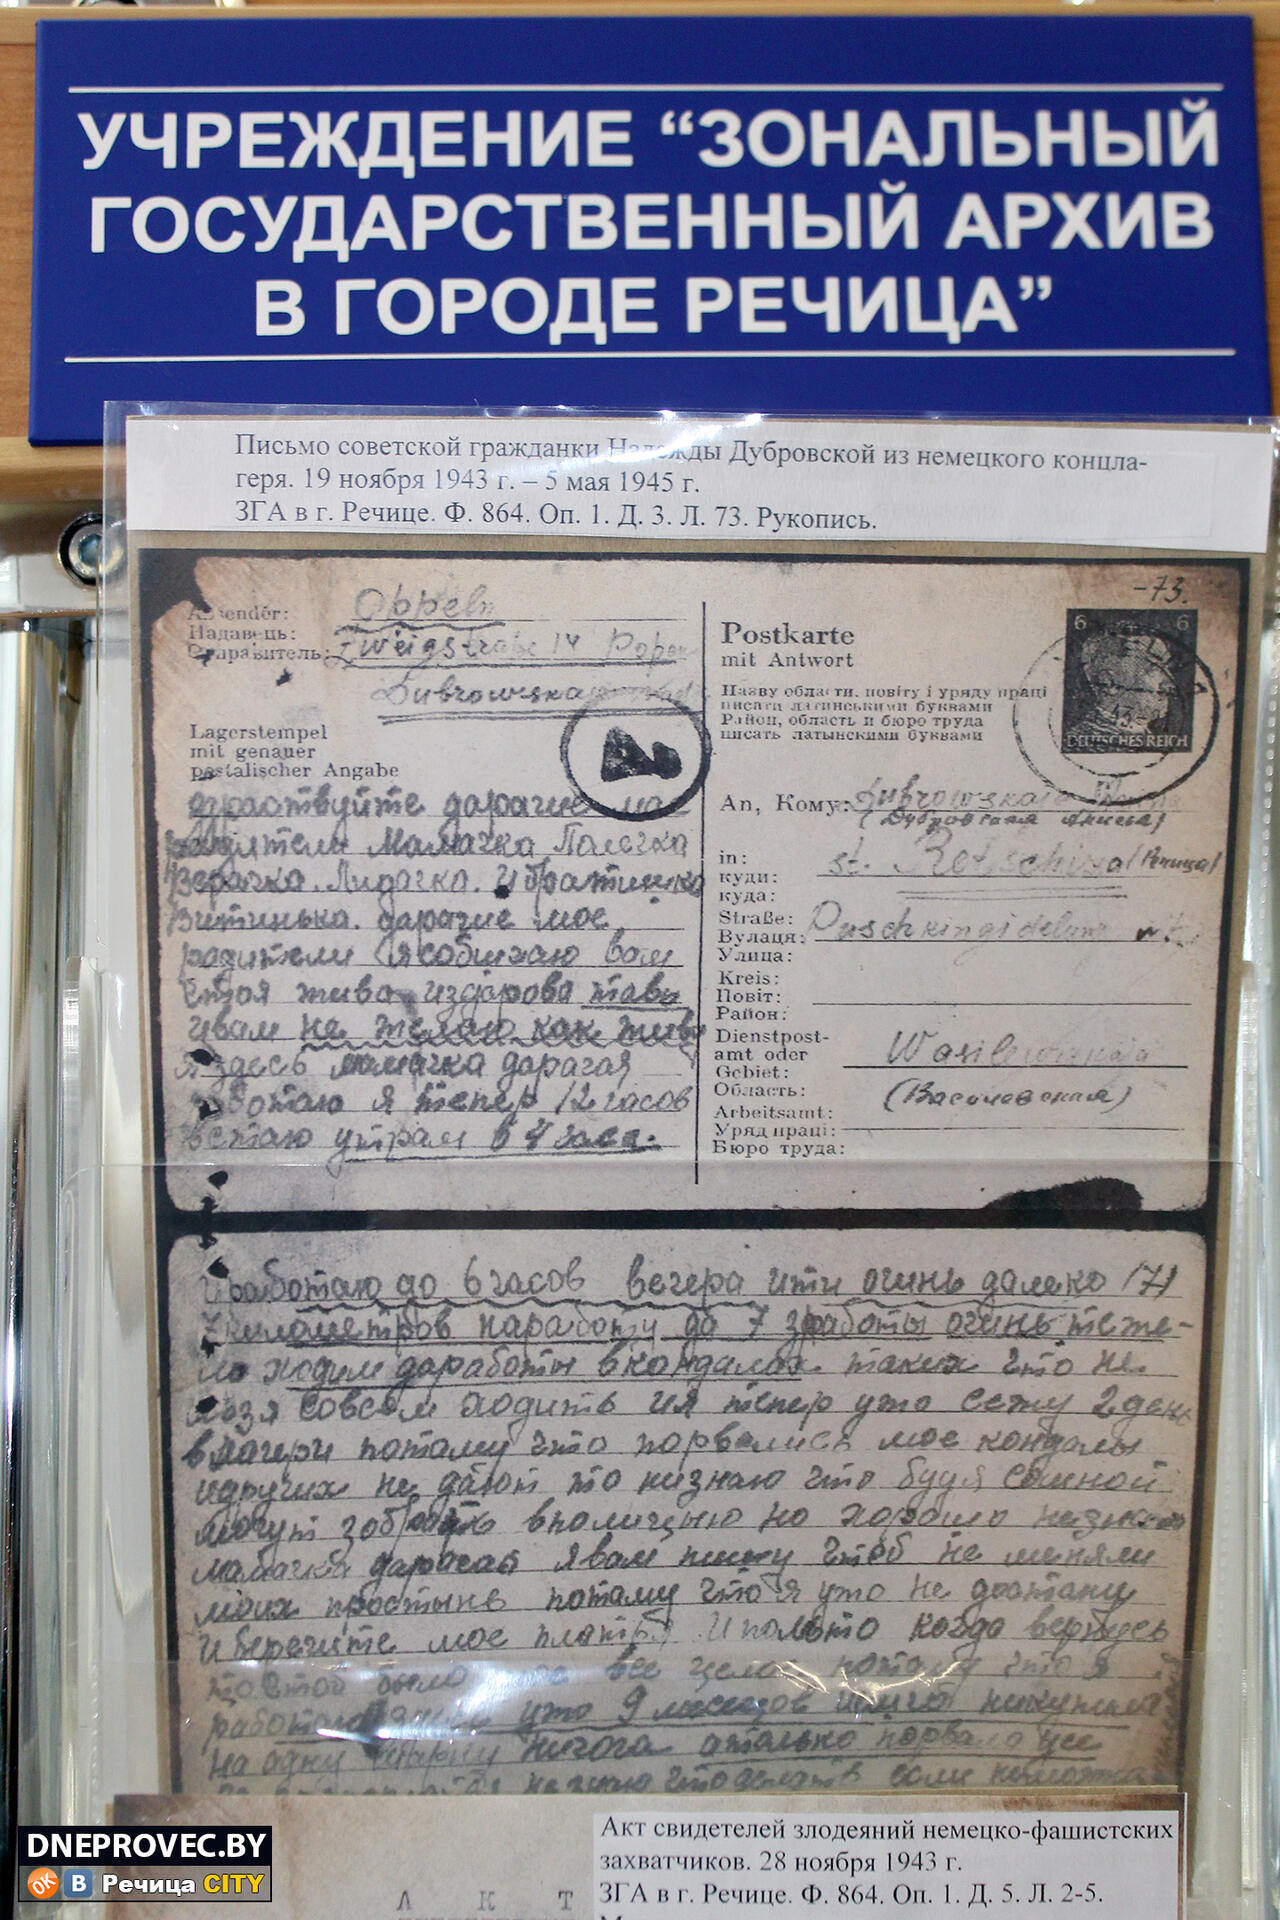 УЧРЕЖДЕНИЕ “ЗОНАЛЬНЫЙ
ГОСУДАРСТВЕННЫЙ АРХИВ
В ГОРОДЕ РЕЧИЦА”
Письмо советской гражданки Надежды Дубровской из немецкого концла-
геря. 19 ноября 1943 г. – 5 мая 1945 г.
ЗГА в г. Речице. Ф. 864. Оп. 1. Д. 3. Л. 73. Рукопись.
-73.
Oppeln
Надавець:
Отправитель: Zweigstraße 14
Dubrowskaja
Lagerstempel
mit genauer
postalischer Angabe
Postkarte
mit Antwort
Назву области, повіту і уряду праці
писати латинськими буквами
Район, область и бюро труда
писать латынскими буквами
6 6
DEUTSCHES REICH
An, Кому: Dubrowskaja
(Дубровская
in: st. Retschiza (Речица)
куди:
куда:
Straße:
Вулиця:
Улица:
Kreis:
Повіт:
Район:
Dienstpost-
amt oder
Gebiet:
Область: (Василевская)
Arbeitsamt:
Уряд праці:
Бюро труда:
здраствуйте дарагие мае
радители Мамачка Полечка
Верачка. Лидачка. и братишка
Витинька. дарагие мое
радители я собщяю вам
штоя жива издарова таво
ивам не желаю как живу
я здесь мамачка дарагая
работаю я тепер 12 часов
встаю утрам в 4 часа.
и работаю до 6 часов вечера ити очинь далеко (7)
7 километров наработу да 7 зработы очинь теже-
ло ходим даработы в кондалах таких что не
льзя совсем ходить ия тепер ужо сежу 2 день
в лагери потаму что порвались мое кондалы
идругих не дают то низнаю что будя сомной
могут забрать вполицыю но харашо низнаю
мамачка дарагая я вам пишу чтоб не меняли
моих простынь потаму что я ужо не достану
и беречите мое платтья и пальто когда вернусь
чтоб было все цело потаму что я
ужо 9 месецов
на одну ничога атолько порвала усе
DNEPROVEC.BY
OK В Речица CITY
Акт свидетелей злодеяний немецко-фашистских
захватчиков. 28 ноября 1943 г.
ЗГА в г. Речице. Ф. 864. Оп. 1. Д. 5. Л. 2-5.
А К Т